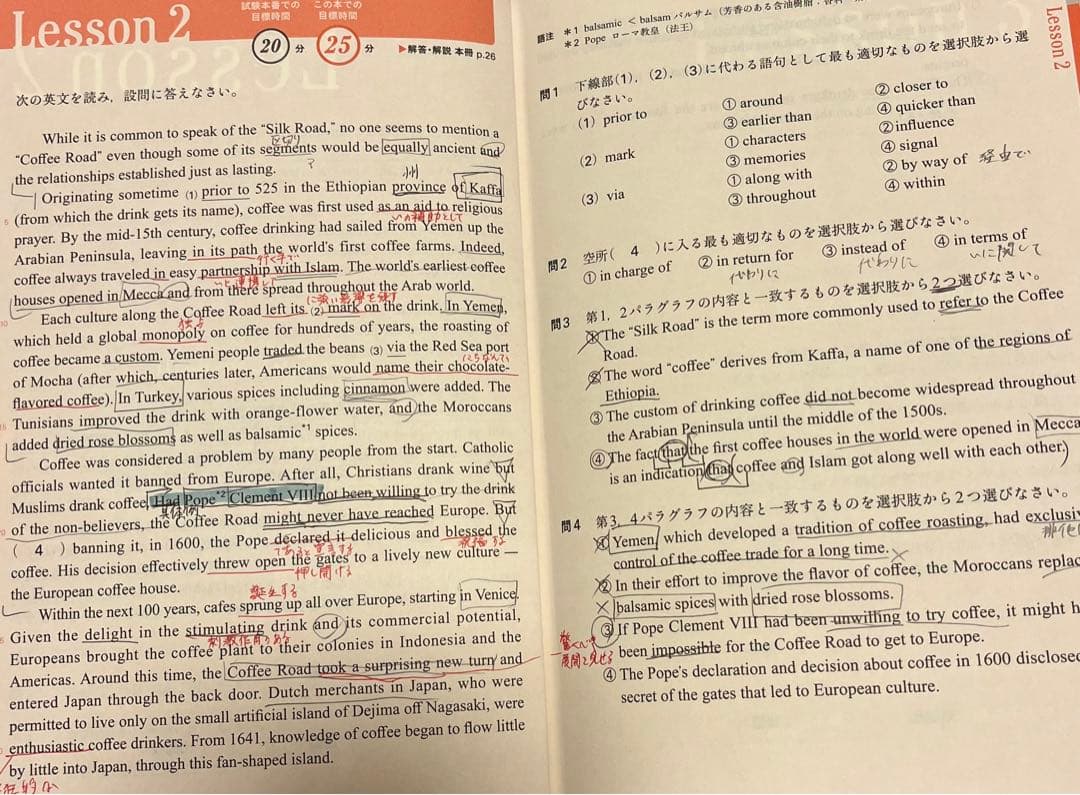 Lesson 2
試験本番での
目標時間
この本での
目標時間
20分
25分
▶解答・解説 本冊 p.26
次の英文を読み，設問に答えなさい。
While it is common to speak of the “Silk Road,” no one seems to mention a
区切り
“Coffee Road” even though some of its segments would be equally ancient and
the relationships established just as lasting.
?
州
Originating sometime (1) prior to 525 in the Ethiopian province of Kaffa
5
(from which the drink gets its name), coffee was first used as an aid to religious
いの補助として
prayer. By the mid-15th century, coffee drinking had sailed from Yemen up the
Arabian Peninsula, leaving in its path the world's first coffee farms. Indeed,
行く手で
coffee always traveled in easy partnership with Islam. The world's earliest coffee
いと連携し
houses opened in Mecca and from there spread throughout the Arab world.
に強い影響を残す
10
Each culture along the Coffee Road left its (2) mark on the drink. In Yemen,
独占
which held a global monopoly on coffee for hundreds of years, the roasting of
coffee became a custom. Yemeni people traded the beans (3) via the Red Sea port
of Mocha (after which, centuries later, Americans would name their chocolate-
にちなんで
flavored coffee). In Turkey, various spices including cinnamon were added. The
15
Tunisians improved the drink with orange-flower water, and the Moroccans
added dried rose blossoms as well as balsamic*1 spices.
Coffee was considered a problem by many people from the start. Catholic
officials wanted it banned from Europe. After all, Christians drank wine but
Muslims drank coffee. Had Pope*2 Clement VIII not been willing to try the drink
具体例
of the non-believers, the Coffee Road might never have reached Europe. But
( 4 ) banning it, in 1600, the Pope declared it delicious and blessed the
であると宣言する
祝福する
coffee. His decision effectively threw open the gates to a lively new culture —
押し開ける
the European coffee house.
誕生する
Within the next 100 years, cafes sprung up all over Europe, starting in Venice.
Given the delight in the stimulating drink and its commercial potential,
刺激作用のある
Europeans brought the coffee plant to their colonies in Indonesia and the
Americas. Around this time, the Coffee Road took a surprising new turn and
驚くべき
展開を見せる
entered Japan through the back door. Dutch merchants in Japan, who were
permitted to live only on the small artificial island of Dejima off Nagasaki, were
enthusiastic coffee drinkers. From 1641, knowledge of coffee began to flow little
by little into Japan, through this fan-shaped island.
Lesson 2
語注 ＊1 balsamic < balsam バルサム（芳香のある含油樹脂：香料
＊2 Pope ローマ教皇（法王）
問1 下線部(1)，(2)，(3)に代わる語句として最も適切なものを選択肢から選
びなさい。
(1) prior to ① around ② closer to
③ earlier than ④ quicker than
(2) mark ① characters ② influence
③ memories ④ signal
(3) via ① along with ② by way of 経由で
③ throughout ④ within
問2 空所( 4 )に入る最も適切なものを選択肢から選びなさい。
① in charge of ② in return for ③ instead of ④ in terms of
代わりに 代わりに いに関して
問3 第1，2パラグラフの内容と一致するものを選択肢から2つ選びなさい。
① The “Silk Road” is the term more commonly used to refer to the Coffee
Road.
② The word “coffee” derives from Kaffa, a name of one of the regions of
Ethiopia.
③ The custom of drinking coffee did not become widespread throughout
the Arabian Peninsula until the middle of the 1500s.
④ The fact that the first coffee houses in the world were opened in Mecca
is an indication that coffee and Islam got along well with each other.
問4 第3，4パラグラフの内容と一致するものを選択肢から2つ選びなさい。
① Yemen, which developed a tradition of coffee roasting, had exclusiv
control of the coffee trade for a long time.
② In their effort to improve the flavor of coffee, the Moroccans replac
balsamic spices with dried rose blossoms.
③ If Pope Clement VIII had been unwilling to try coffee, it might h
been impossible for the Coffee Road to get to Europe.
④ The Pope's declaration and decision about coffee in 1600 disclosed
secret of the gates that led to European culture.